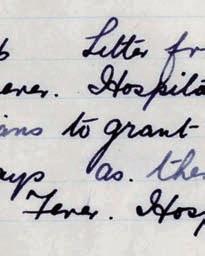 Letter fr
ever. Hospita
ans to grant
ays as. the
Fever. Hosp